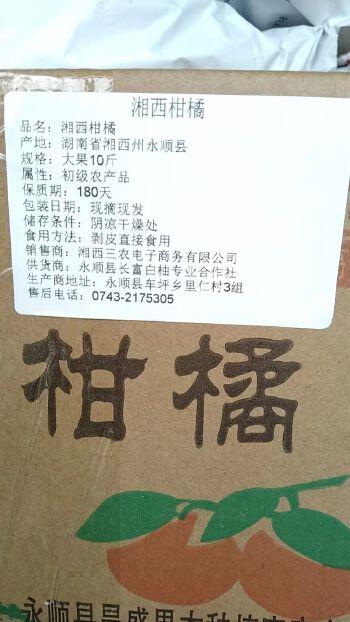 湘西柑橘
品名：湘西柑橘
产地：湖南省湘西州永顺县
规格：大果10斤
属性：初级农产品
保质期：180天
包装日期：现摘现发
储存条件：阴凉干燥处
食用方法：剥皮直接食用
销售商：湘西三农电子商务有限公司
供货商：永顺县长富白柚专业合作社
生产商地址：永顺县车坪乡里仁村3组
售后电话：0743-2175305
柑橘
永顺县昌盛果木种植